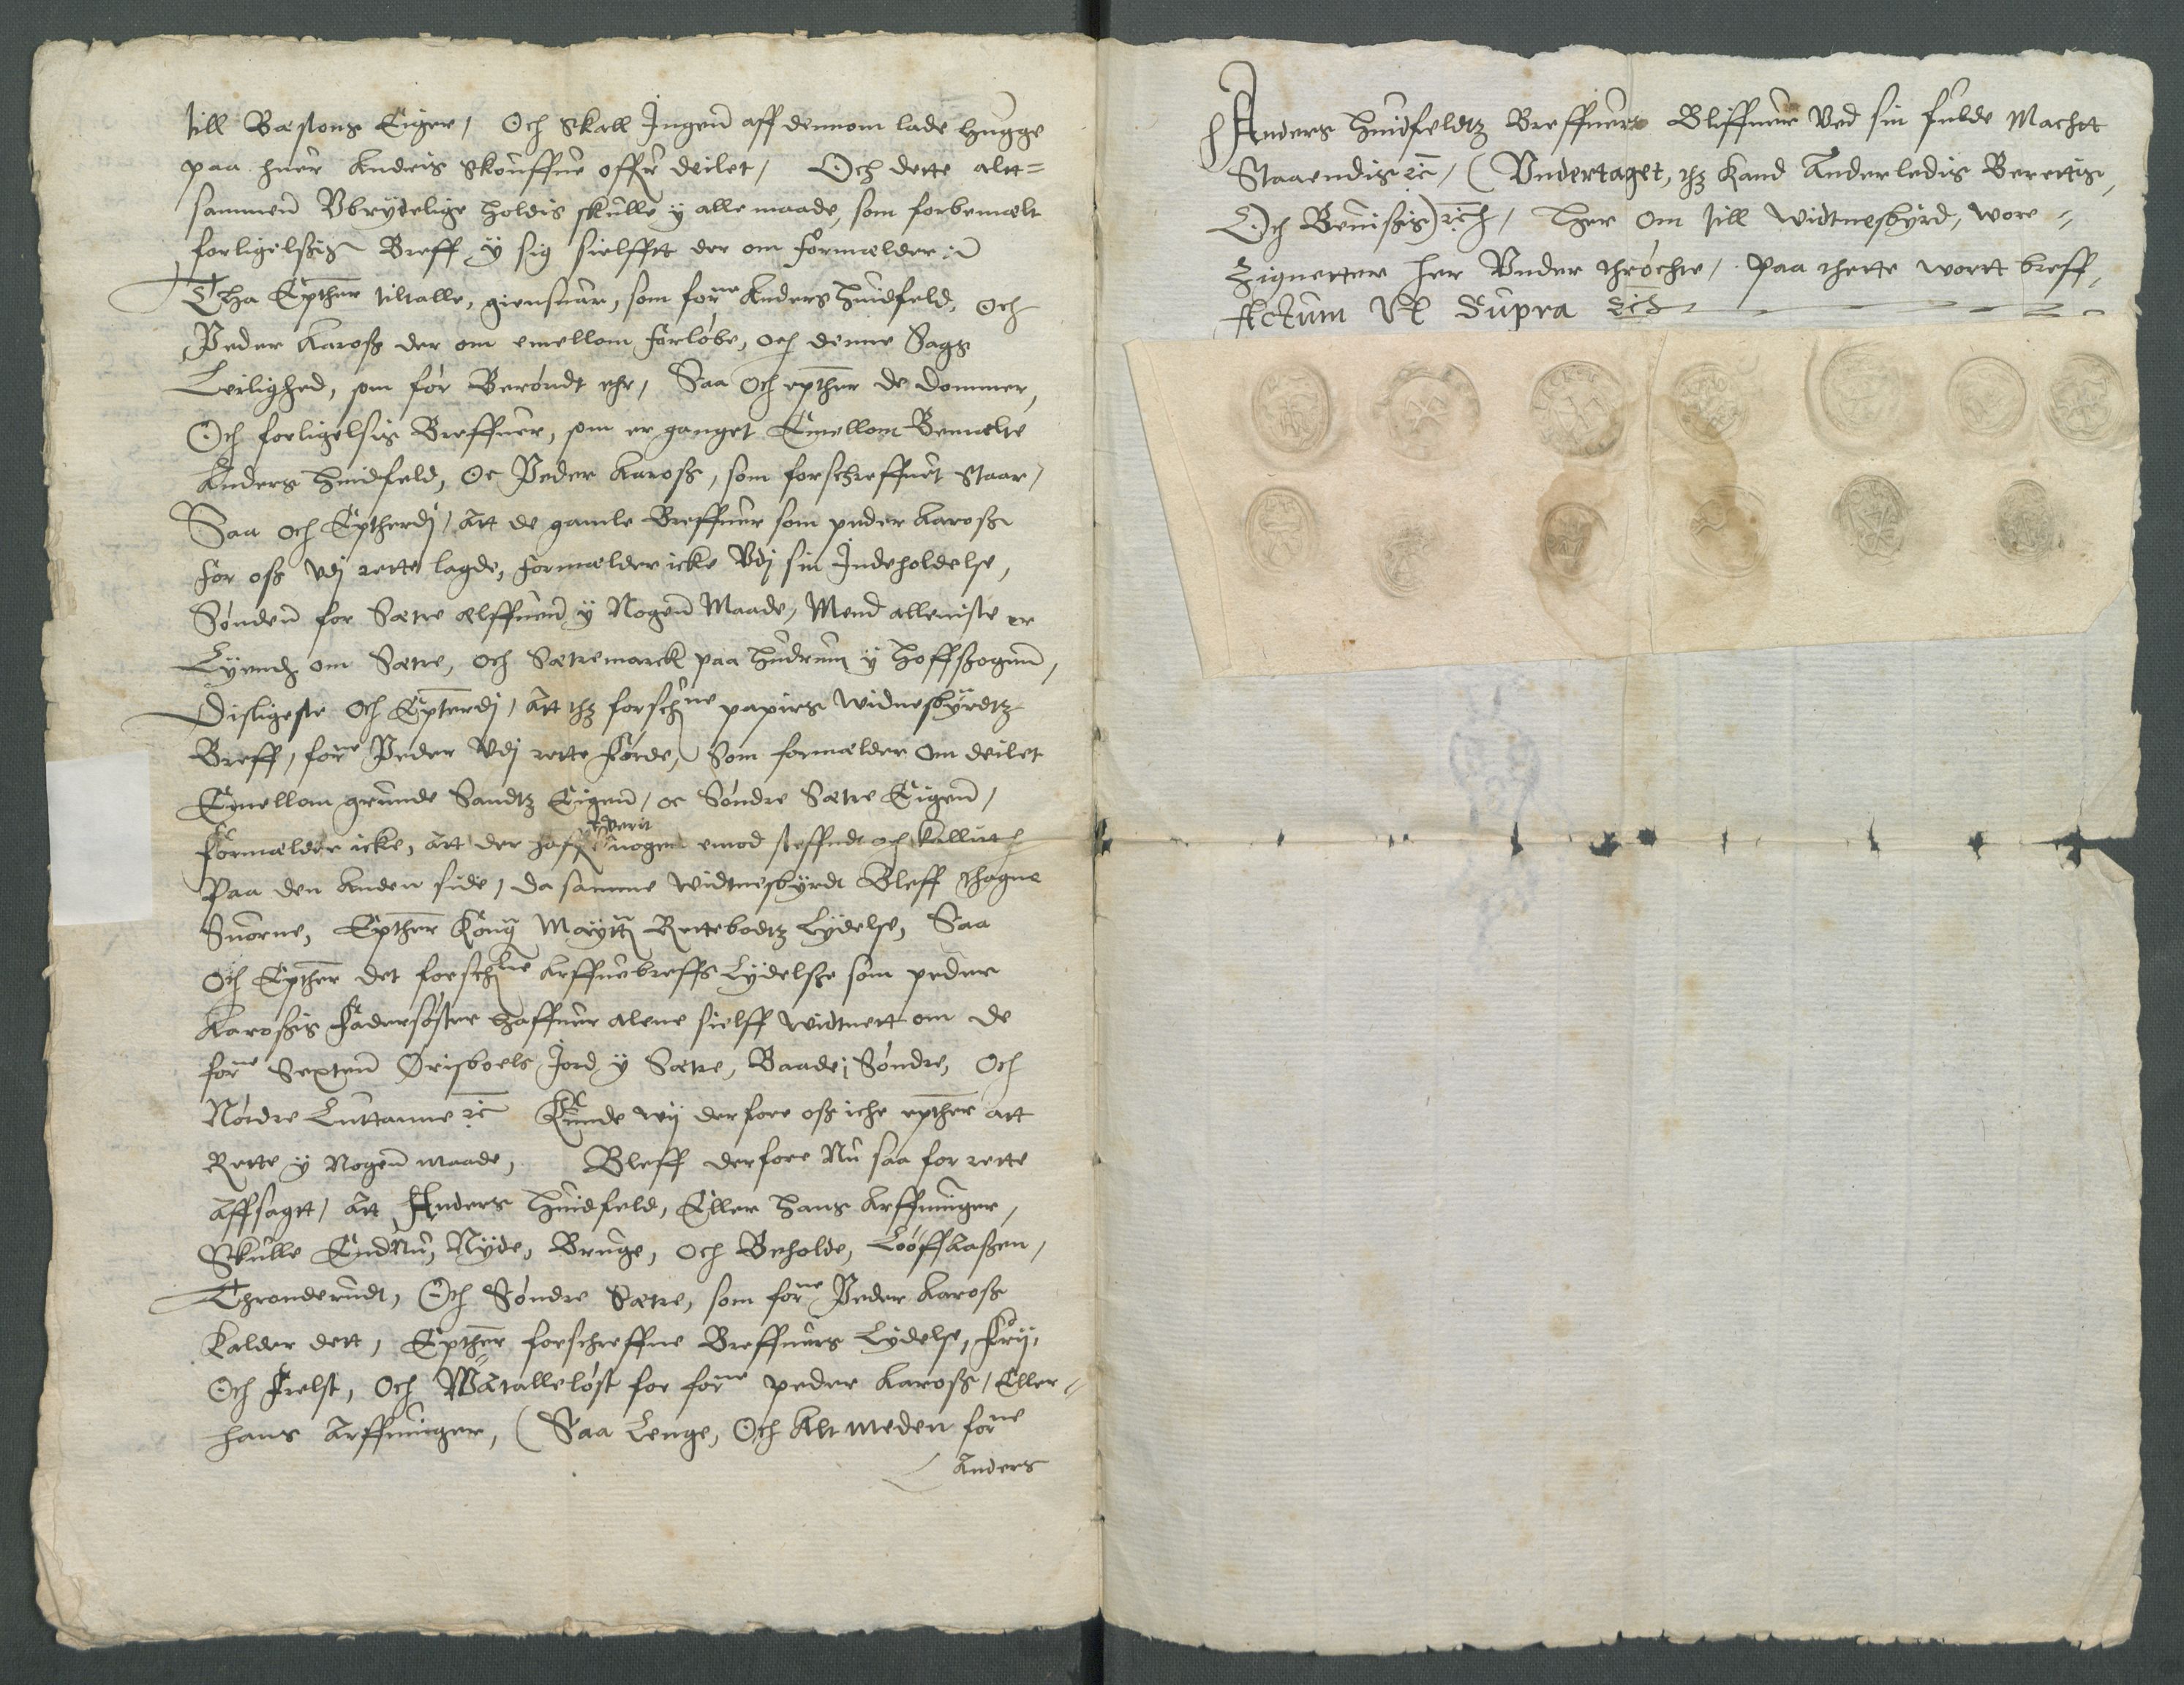 till Bastons Eiger, Och Skall Ingenn aff dennom lade hugge
paa huer Andris Skouffue offuer deilet, Och dette altt=
sammenn Vbrydelige holdis skulle y alle maade, som forbemælt
forligelsis Breff y sig sielfftt der om formælder :
Tha Epther tiltalle, giensuar, som forne Anders Huidfeld, Och
Peder Kaross der om emellom forløbe, och denne Sags
Leilighed, som før Berøndt ehr, Saa Och epther de dommer,
Och forligelsis Breffuer, som er ganget Emellom Bemælte
Anders Huidfeld, Oc Peder Kaross, som forschreffuet Staar,
Saa och Eptherdj, Att de gamle Breffuer som peder Kaross
for oss vdj rette lagde, formælder icke Vdj sin Indeholdelse,
Sønden for Sætre elffuenn y Nogenn Maade, Mend alleniste er
Lyendis om Sætre, och Sætremarck paa Hudrum y Hoffssogenn,
Disligeste Och Epterdj, Att thz forschne papirs widnesbyrdtz
Breff, forne Peder Vdj rette førde, Som formælder Om deilet
Emellom grunde Sandtz Eigenn, oc Søndre Sætre Eigenn,
Formælder icke, att der haffuer werit nogen emod steffndt och kallitt
Paa den Anden side, da samme widtnesbyrdt Bleff thagne
Suorne, Epther Kong Maytts Rettebodtz Lydelse, Saa
Och Epther det forschne Arffuebreffs Lydelsze som peder
Karossis Fadersøster haffuer alene sielff widtnett om de
forne Sexten Ørisboels Jord y Sætre, Baade i Søndre, Och
Nørdre Luttanne etc Kunde wij derfore oss iche epther att
Rette y Nogenn maade, Bleff derfore Nu saa for rette
Affsagtt, Att Anders Huidfeld, Eller Hans Arffuinger,
Skulle EndNu, Nyde, Bruge, och Beholde, Lööffaassen,
Thronderudt, Och Søndre Sætre, som forne Peder Kaross
Kalder dett, Epther forschreffne Breffuers Lydelse, Frij,
Och Frelst, Och WAtalleløst for forne peder Kaross, Eller
hans Arffuinger, (Saa Lenge, Och Alt meden forne
Anders
Anders Huidfeldtz Breffuer Bliffuer Ved sin fulde Machtt
Staaendis etc, (Vndertaget, thz Kand Anderledis Berettis,
Och Beuissis) etc, Her om till widtnesbyrd, wore
Zignetter her Vnder thrøchte, paa thette wortt breff,
Actum Vt Supra etc